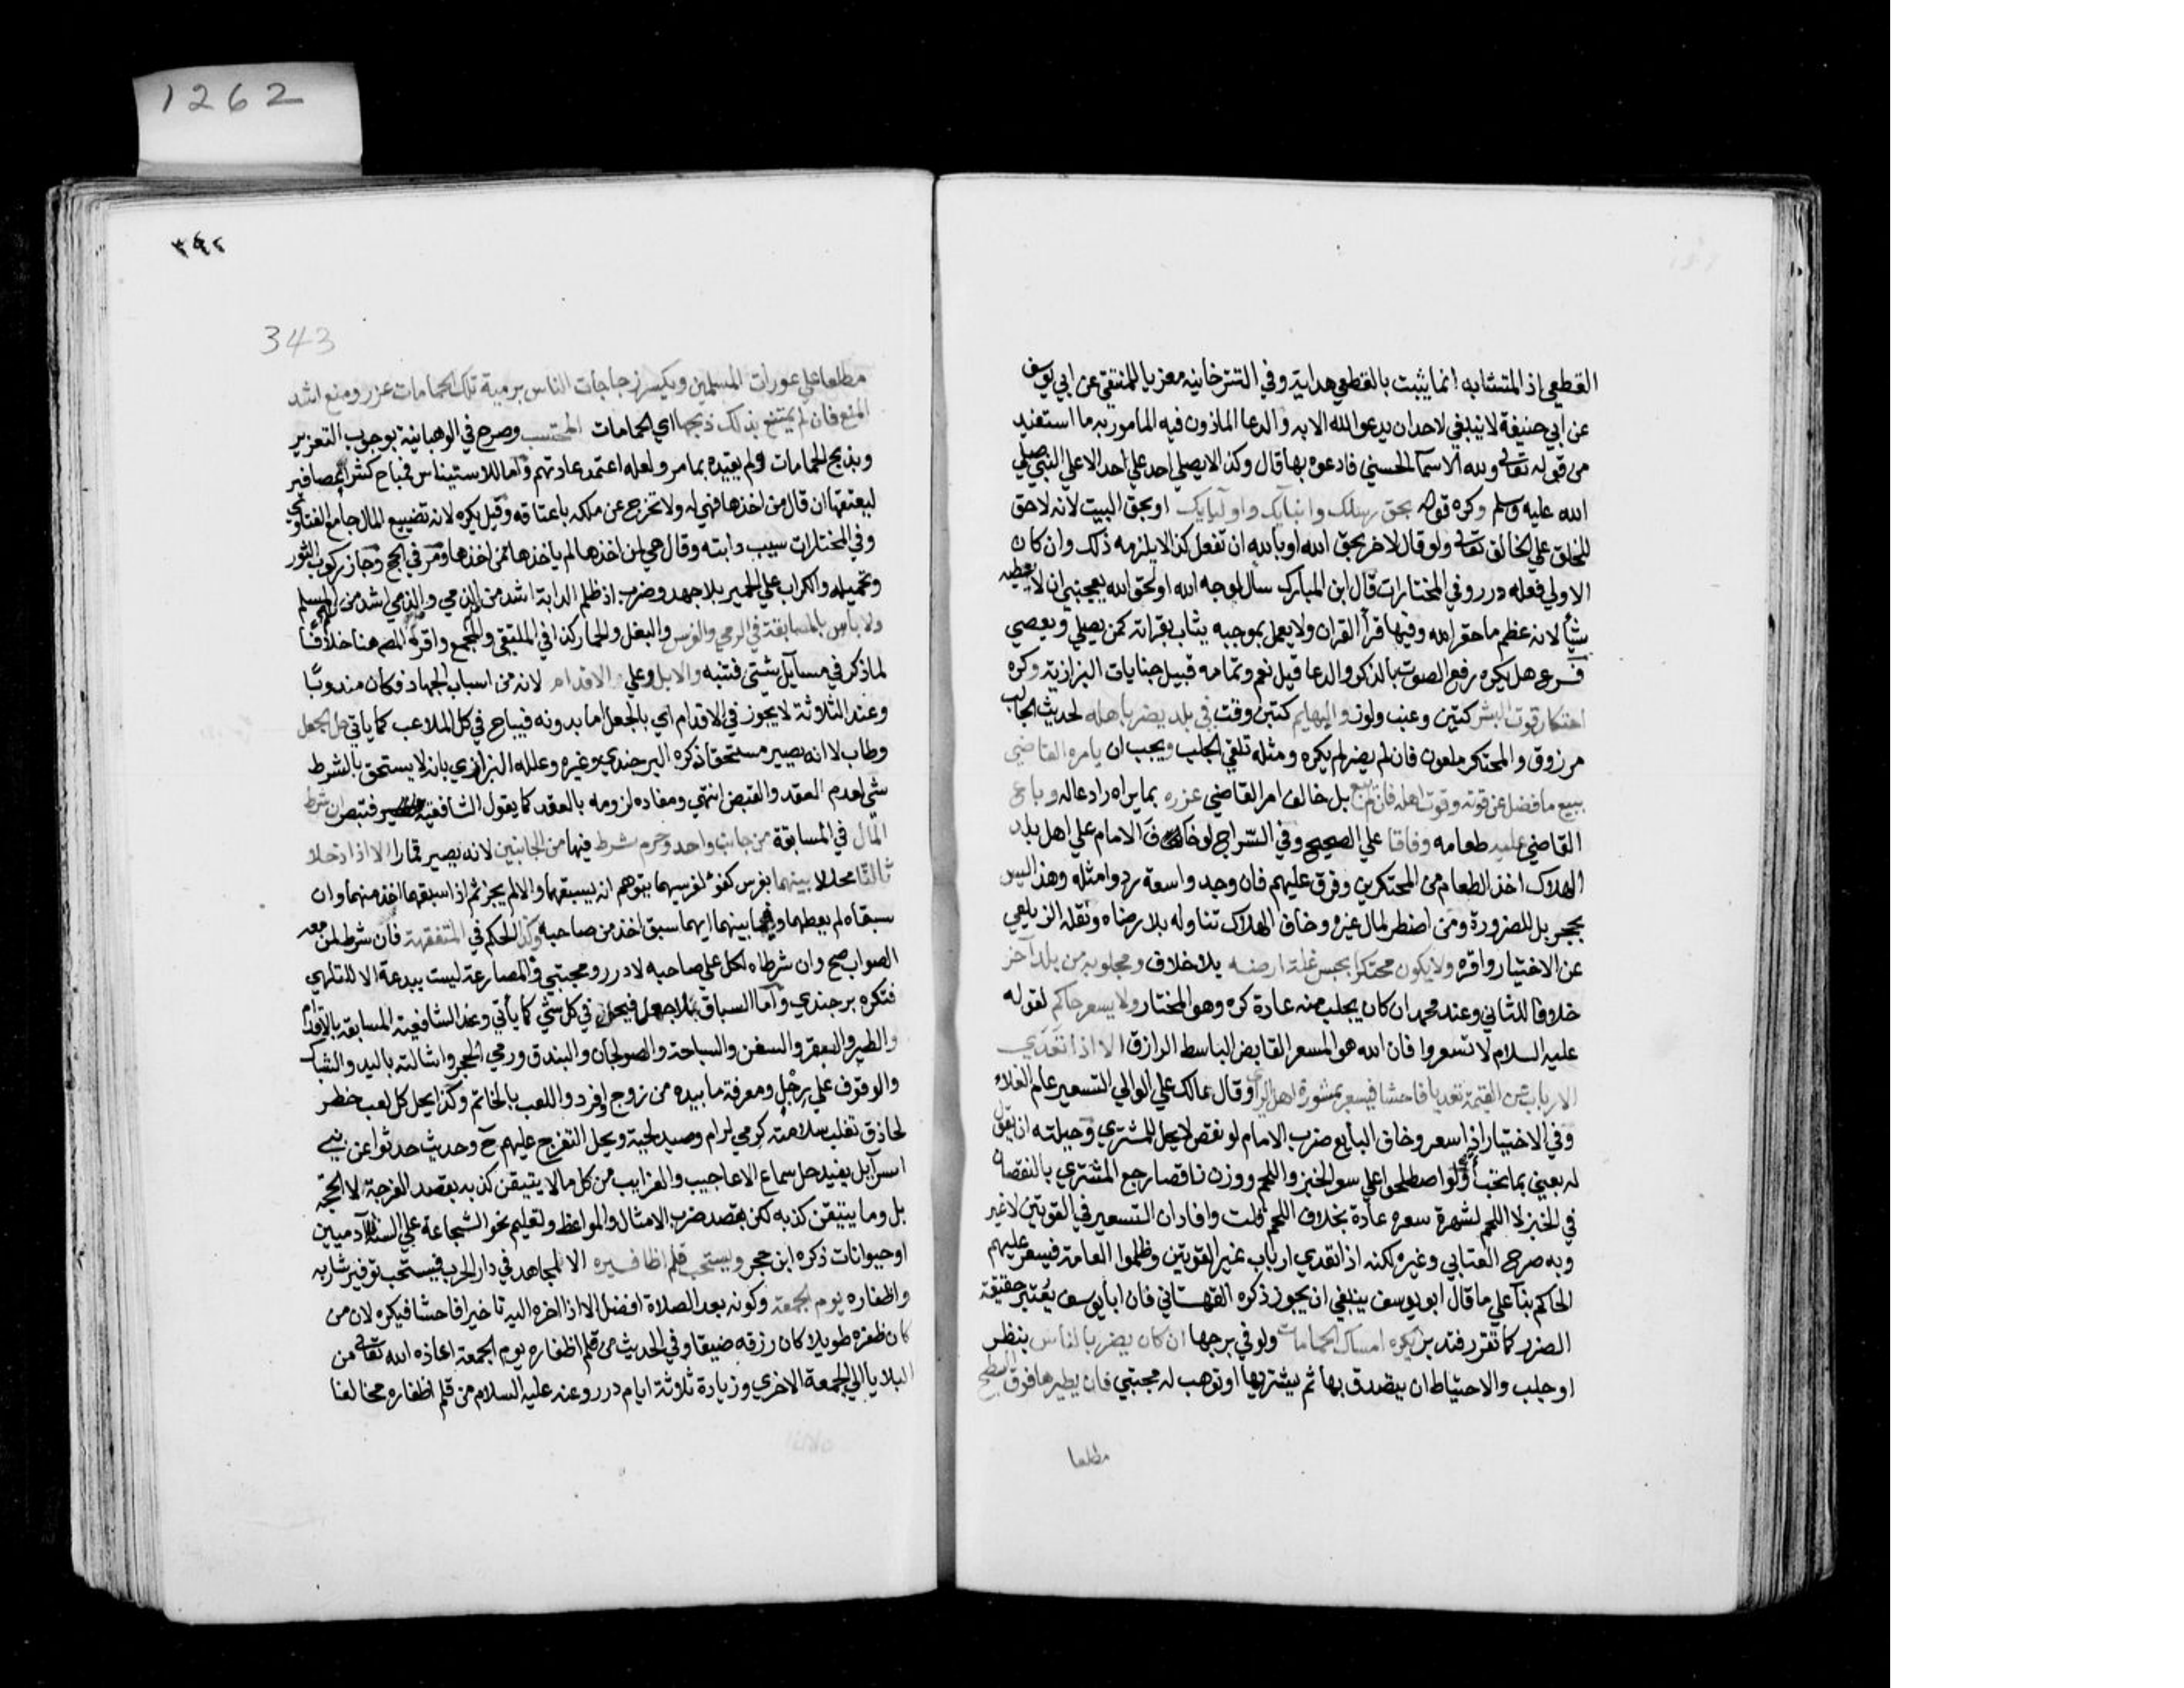 1262
القطعي اذ المتشابه انما يثبت بالقطعي هداية وفي التترخانيه معزيا للمنتقي عن ابي يوسف
عن ابي حنيفة لا ينبغي لاحد ان يدعو الله الا به والدعا الماذون فيه المامور به ما استفيد
من قوله تعالى ولله الاسما الحسني فادعوه بها قال وكذا لا يصلي احد علي احد الا علي النبي صلي
الله عليه وسلم وكره قوله بحق رسلك وانبيايك واوليايك او بحق البيت لانه لا حق
للخلق علي الخالق تعالى ولو قال لاخر بحق الله او بالله ان تفعل كذا لا يلزمه ذلك وان كان
الاولي فعله درر وفي المختارات قال ابن المبارك سأل لوجه الله او لحق الله يعجبني ان لا يعطيه
شيأ لانه عظم ما حقر الله وفيها قرأ القران ولا يعمل بموجبه يثاب بقراته كمن يصلي ويعصي
فرع هل يكره رفع الصوت بالذكر والدعا قيل نعم وتمامه قبيل جنايات البزازية وكره
احتكار قوت البشر كتين وعنب ولوز والبهايم كتبن وقت في بلد يضر باهله لحديث الجالب
مرزوق والمحتكر ملعون فان لم يضر لم يكره ومثله تلقي الجلب ويجب ان يامره القاضي
ببيع ما فضل عن قوته وقوت اهله فان لم يبع بل خالف امر القاضي عزره بما يراه رادعا له وباع
القاضي عليه طعامه وفاقا علي الصحيح وفي السراج لو خاف الامام علي اهل بلد
الهلاك اخذ الطعام من المحتكرين وفرق عليهم فان وجدوا سعة ردوا مثله وهذا ليس
بحجر بل للضرورة ومن اضطر لمال غيره وخاف الهلاك تناوله بلا رضاه ونقله الزيلعي
عن الاختيار واقره ولا يكون محتكرا بحبس غلة ارضه بلا خلاف ومجلوبه من بلد آخر
خلافا للثاني وعند محمد ان كان يجلب منه عادة كره وهو المختار ولا يسعر حاكم لقوله
عليه السلام لا تسعروا فان الله هو المسعر القابض الباسط الرازق الا اذا تعدي
الارباب عن القيمة تعديا فاحشا فيسعر بمشورة اهل الراي وقال مالك علي الوالي التسعير عام الغلاء
وفي الاختيار اذا سعر وخاف البايع ضرب الامام لو نقص لا يحل للمشتري وحيلته ان يقول
له بعني بما تحب ولو اصطلحوا علي سعر الخبز واللحم ووزن ناقصا رجع المشتري بالنقصان
في الخبز لا اللحم لشهرة سعره عادة بخلاف اللحم قلت وافاد ان التسعير في القوتين لا غير
وبه صرح العتابي وغيره لكنه اذا تعدي ارباب غير القوتين وظلموا العامة فيسعر عليهم
الحاكم بنآ علي ما قال ابو يوسف ينبغي ان يجوز ذكره القهستاني فان ابا يوسف يعتبر حقيقة
الضرر كما تقرر فتدبر يكره امساك الحمامات ولو في برجها ان كان يضر بالناس بنظر
او جلب والاحتياط ان يتصدق بها ثم يشتريها او توهب له مجتبي فان يطيرها فوق السطح
مطلعا
٣٤٢
343
مطلعا علي عورات المسلمين ويكسر زجاجات الناس برميه تلك الحمامات عزر ومنع اشد
المنع فان لم يمتنع بذلك ذبحها اي الحمامات المحتسب وصرح في الوهبانية بوجوب التعزير
وبذبح الحمامات ولم يقيده بما مر ولعله اعتمد عادتهم واما للاستيناس فمباح كشرا عصافير
ليعتقها ان قال من اخذها فهي له ولا تخرج عن ملكه باعتاقه وقيل يكره لانه تضييع المال جامع الفتاوي
وفي المختارات سيب دابته وقال هي لمن اخذها لم ياخذها ممن اخذها ومر في الحج وجاز ركوب الثور
وتحميله والكراب علي الحمير بلا جهد وضرب اذ ظلم الدابة اشد من الذمي والذمي اشد من المسلم
ولا باس بالمسابقة في الرمي والفرس والبغل والحمار كذا في الملتقي والمجمع واقره المصـ هنا خلافا
لما ذكر في مسايل شتي فتنبه والابل وعلي الاقدام لانه من اسباب الجهاد فكان مندوبا
وعند الثلاثة لا يجوز في الاقدام اي بالجعل اما بدونه فيباح في كل الملاعب كما ياتي حل الجعل
وطاب لا انه يصير مستحقا ذكره البرجندي وغيره وعلله البزازي بانه لا يستحق بالشرط
شي لعدم العقد والقبض انتهي ومفاده لزومه بالعقد كما يقول الشافعية فتبصر ان شرط
المال في المسابقة من جانب واحد وحرم شرط فيها من الجانبين لانه يصير قمارا الا اذا ادخلا
ثالثا محللا بينهما بفرس كفؤ لفرسيهما يتوهم انه يسبقهما والا لم يجز ثم اذا سبقهما اخذ منهما وان
سبقاه لم يعطهما وفيما بينهما ايهما سبق اخذ من صاحبه وكذا الحكم في المتفقهة فان شرط لمن معه
الصواب صح وان شرطاه لكل علي صاحبه لا درر ومجتبي والمصارعة ليست ببدعة الا للتلهي
فتكره برجندي واما السباق بلا جعل فيجوز في كل شي كما يأتي وعند الشافعية المسابقة بالاقدام
والطير والبقر والسفن والسباحة والصولجان والبندق ورمي الحجر واشالته باليد والشباك
والوقوف علي رجل ومعرفة ما بيده من زوج او فرد واللعب بالخاتم وكذا يحل كل لعب خطر
لحاذق تغلب سلامته كرمي لرام وصيد لحية ويحل التفرج عليهم ح وحديث حدثوا عن بني
اسرآيل يفيد حل سماع الاعاجيب والغرايب من كل ما لا يتيقن كذبه بقصد الفرجة لا الحجة
بل وما يتيقن كذبه لكن بقصد ضرب الامثال والمواعظ وتعليم نحو الشجاعة علي السنة آدميين
او حيوانات ذكره ابن حجر ويستحب قلم اظافيره الا لمجاهد في دار الحرب فيستحب توفير شاربه
واظفاره يوم الجمعة وكونه بعد الصلاة افضل الا اذا اخره اليه تاخيرا فاحشا فيكره لان من
كان ظفره طويلا كان رزقه ضيقا وفي الحديث من قلم اظفاره يوم الجمعة اعاذه الله تعالى من
البلايا الي الجمعة الاخري وزيادة ثلاثة ايام درر وعنه عليه السلام من قلم اظفاره مخالفا